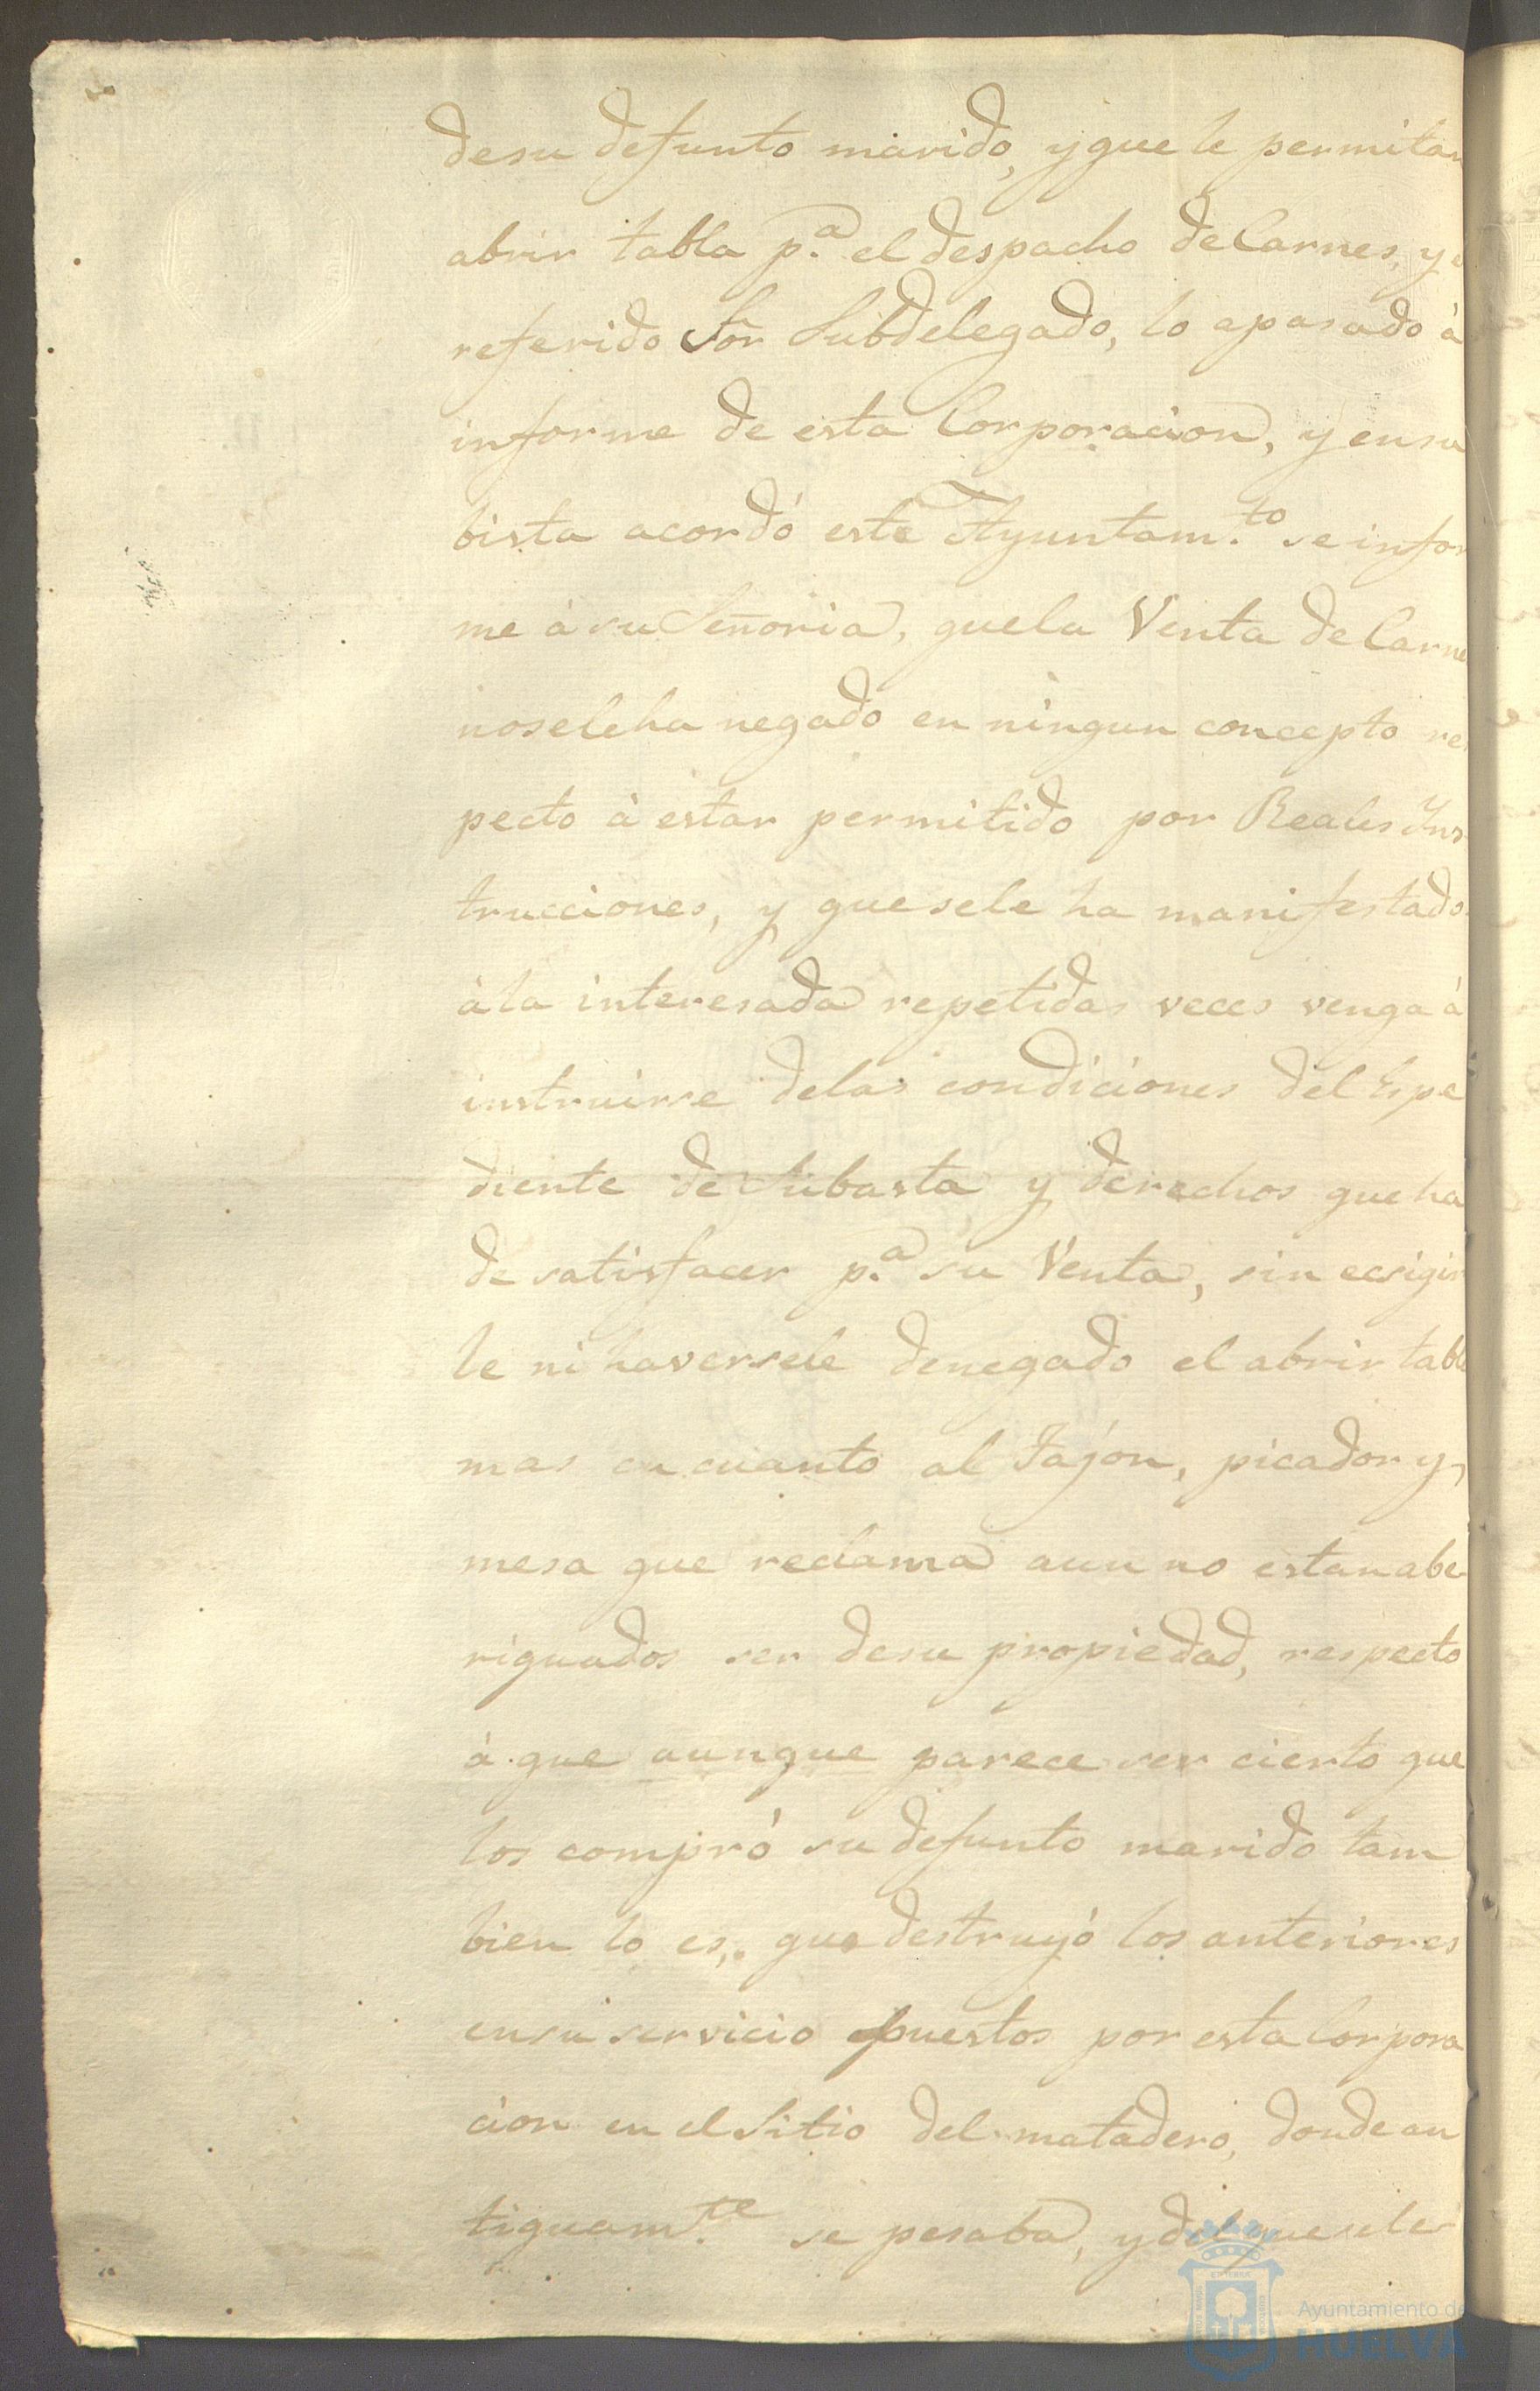 desu defunto marido, yque le permitan
abrir tabla p.ª el despacho de Carnes, y
referido Sõr Subdelegado, lo apasado à
informe de esta Corporacion, y ensu
bista acordó este Ayuntam.to se infor
me à su Señoria, quela Venta de Carne
noseleha negado en ningun concepto res
pecto à estar permitido por Reales Yns
trucciones, y quesele ha manifestado
àla interesada repetidas veces venga à
instruirse delas condiciones del Espe
diente de Subasta y derechos que ha
de satisfacer p.ª su Venta, sin ecsigir
le ni haversele denegado el abrir tabla
mas en cuanto al Tajón, picador y,
mesa que reclama aun no estan abe
riguados ser desu propiedad, respecto
à que aunque parece ser cierto que
los compró su defunto marido tam
bien lo es, que destruyó los anteriores
ensu servicio puestos por esta Corpora
cion en el Sitio del matadero, donde an
tiguam.te se pesaba, ydel que seles
Ayuntamiento de
HUELVA